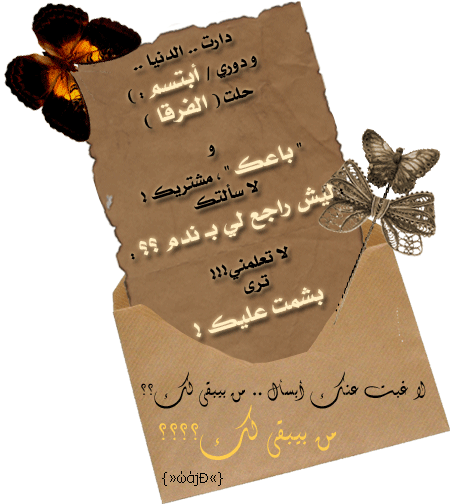 دارت .. الدنيا ..
و دوري / أبتسم : )
حلت ( الفرقا )
و
" باعك " ، مشتريك !
لا سألتك
ليش راجع لي بـ ندم ؟؟ :
لا تعلمني !!!
ترى
بشمت عليك !
لا غبت عنك أبسأل .. من بيبقى لك ؟؟
من بيبقى لك ؟؟؟؟
{»ώάјĐ«}